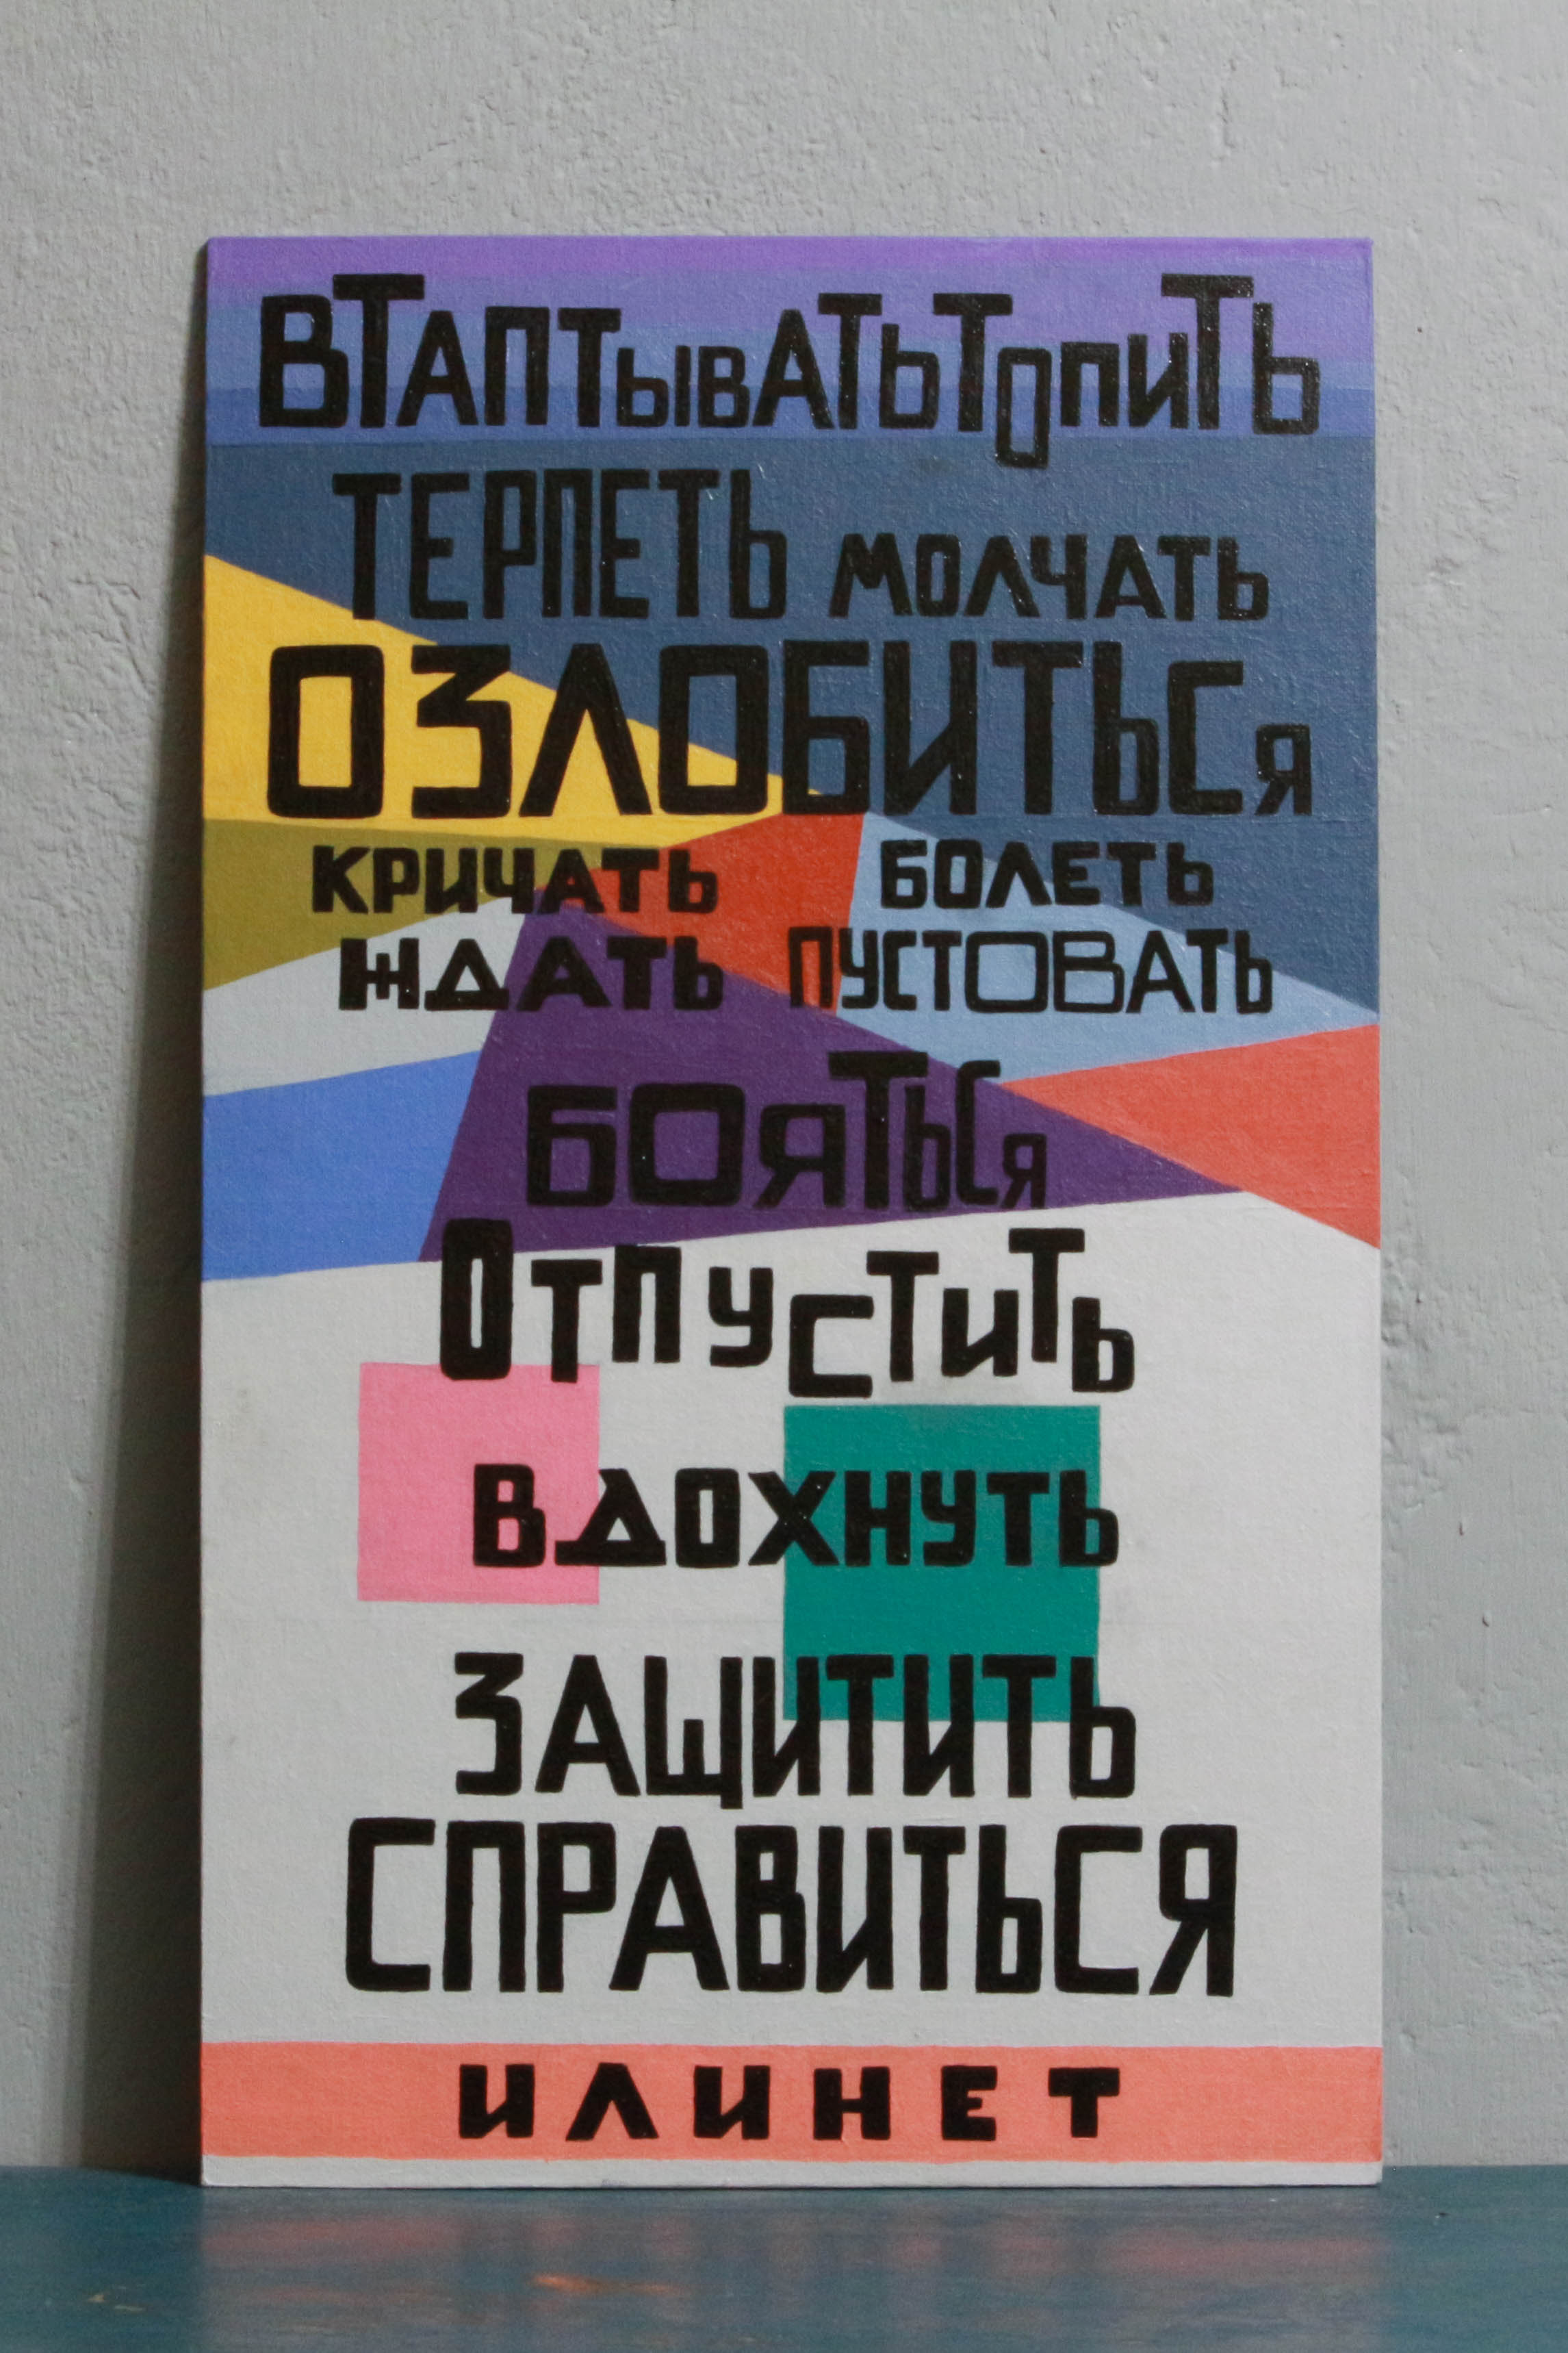 ВТАПТЫВАТЬТОПИТЬ
ТЕРПЕТЬ МОЛЧАТЬ
ОЗЛОБИТЬСЯ
КРИЧАТЬ БОЛЕТЬ
ЖДАТЬ ПУСТОВАТЬ
БОЯТЬСЯ
ОТПУСТИТЬ
ВДОХНУТЬ
ЗАЩИТИТЬ
СПРАВИТЬСЯ
ИЛИНЕТ